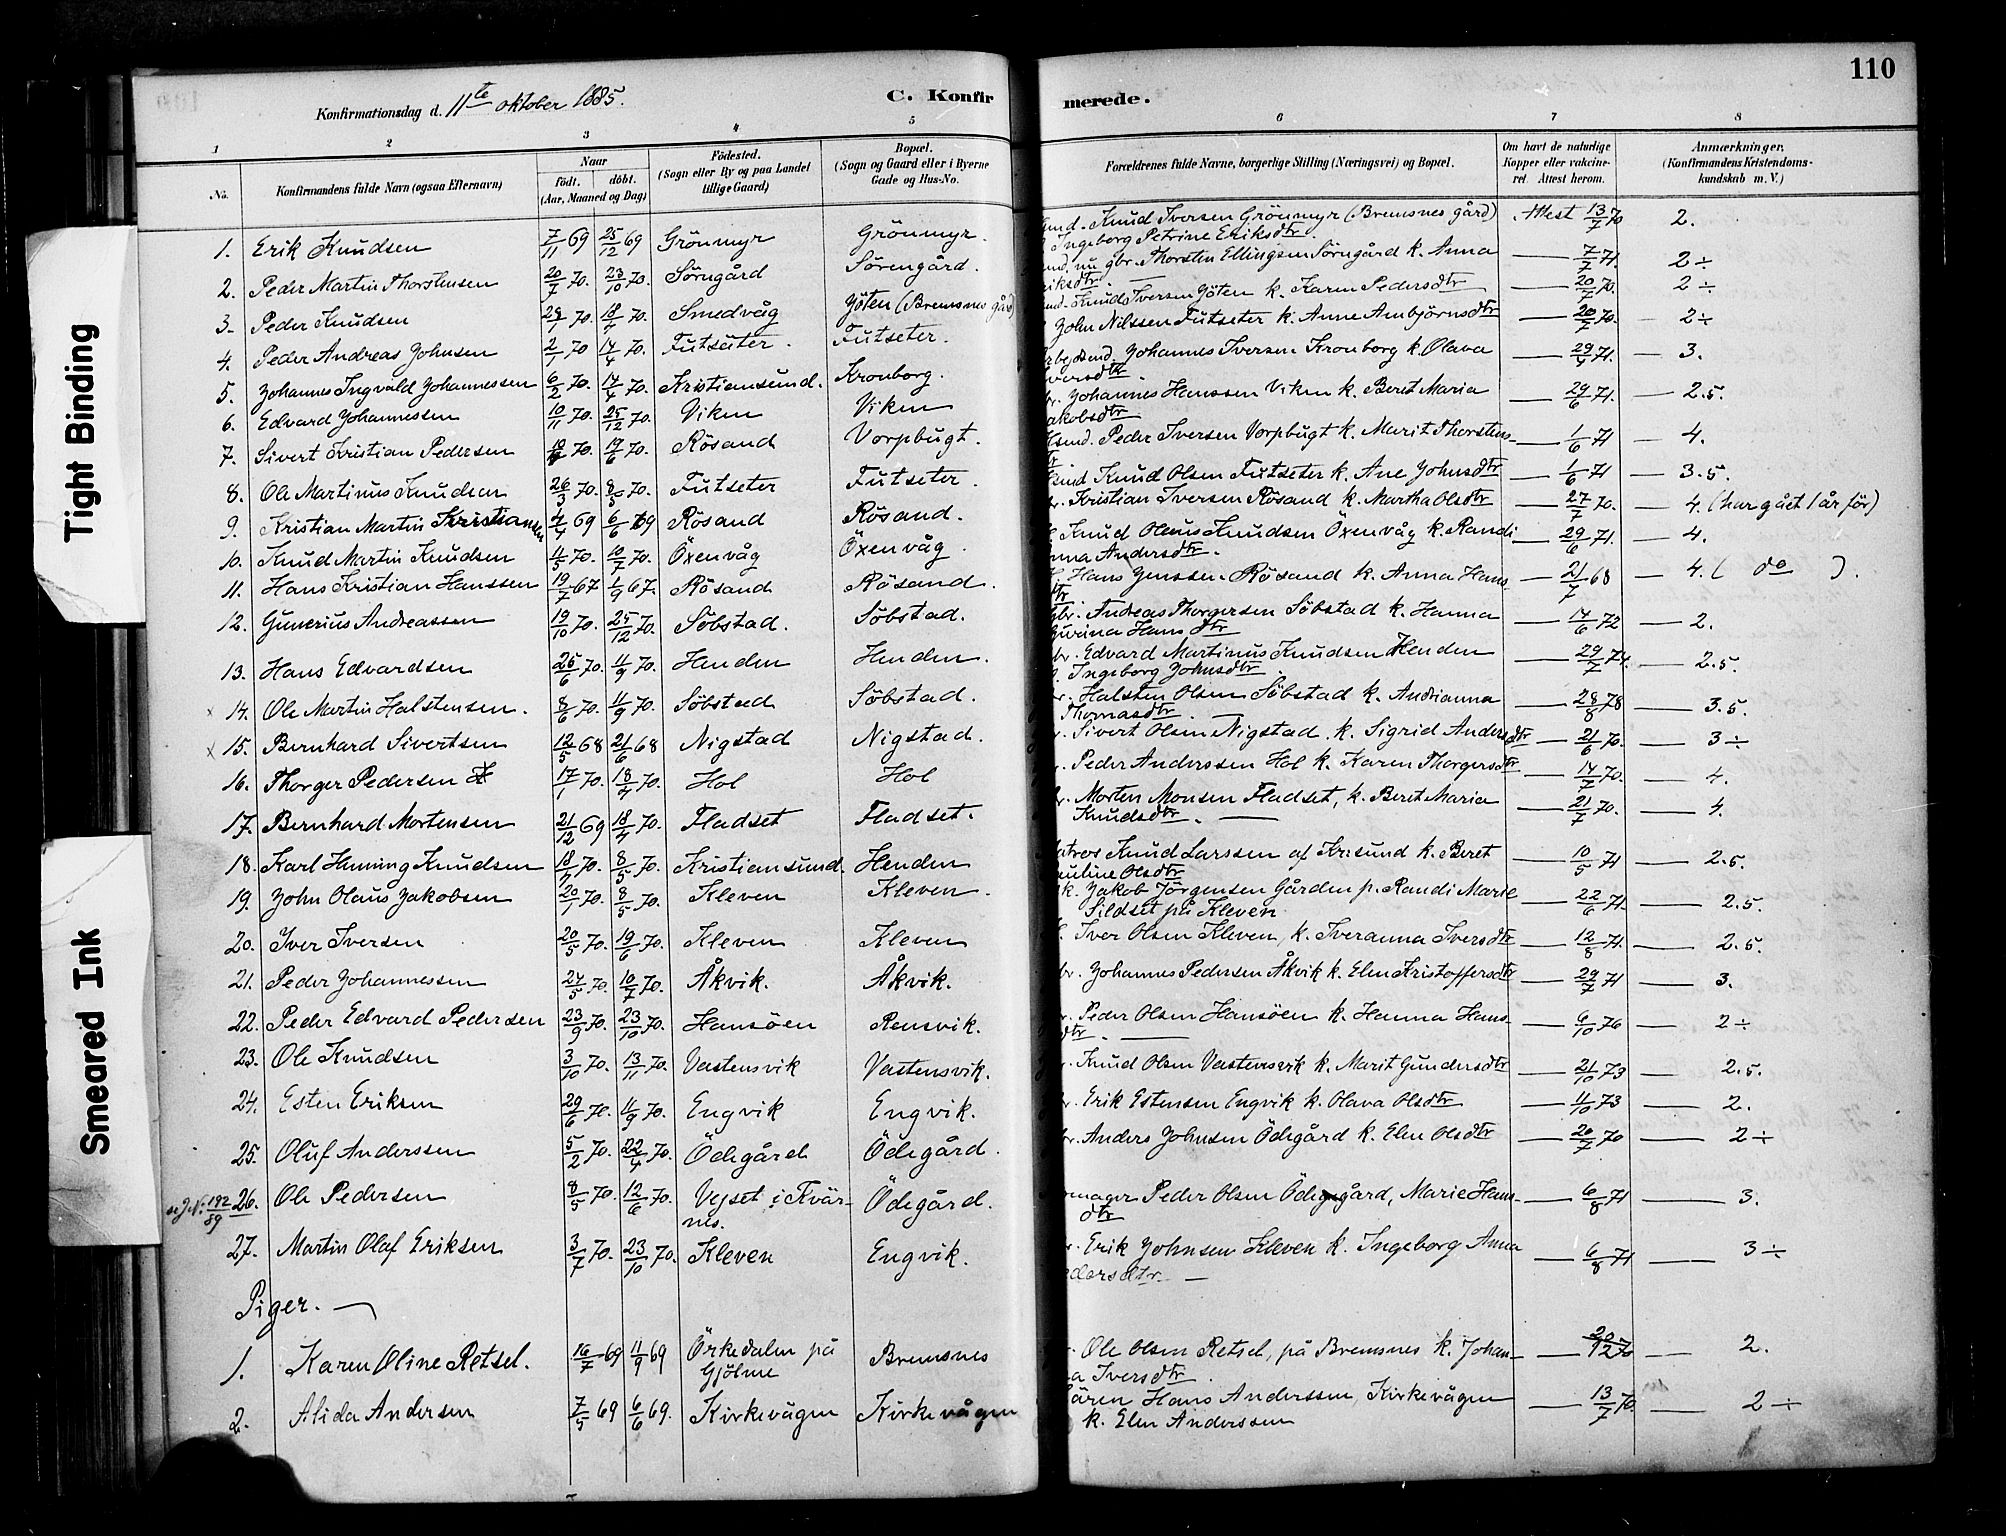 110
Konfirmationsdag d. 11te oktober 1885.
C. Konfirmerede.
1 2 3 4 5 6 7 8
No.
Konfirmandens fulde Navn (ogsaa Efternavn)
Naar
födt. döbt.
(Aar, Maaned og Dag)
Födested.
(Sogn eller By og paa Landet
tillige Gaard)
Bopæl.
(Sogn og Gaard eller i Byerne
Gade og Hus-No.
Forældrenes fulde Navne, borgerlige Stilling (Næringsvei) og Bopæl.
Om havt de naturlige
Kopper eller vakcine-
ret. Attest herom.
Anmærkninger.
(Konfirmandens Kristendoms-
kundskab m. V.)
1. Erik Knudsen 7/11 69 25/12 69 Grönmyr Grönmyr. Knud Iversen Grönmyr (Bremsnes gård) Attest 13/7 70 2.
Ingeborg Petrine Eriksdtr.
2. Peder Martin Thorstensen 20/7 70. 23/10 70. Sörngård Sörengård. nu gbr. Thorsten Ellingsen Sörngård k. Anna — 7/7 71. 2÷
3. Peder Knudsen 29/1 70. 18/4 70. Smedvåg Jöten (Bremsnes gård) Knud Iversen Jöten k. Karen Pedersdtr — 20/7 70. 2÷
4. Peder Andreas Johnsen 2/1 70 14/4 70. Futsæter. Futseter. John Nilssen Futseter k. Anne Arnbjörnsdtr — 20/7 70. — 2÷
5. Johannes Ingvald Johannessen 6/2 70. 14/4 70. Kristiansund. Kronborg. Johannes Iversen Kronborg k. Olava — 29/4 71. — 3.
6. Edvard Johannessen 10/11 70. 25/12 70. Viken Viken Johannes Hanssen Viken k. Beret Maria — 29/6 71. — 2.5.
7. Sivert Kristian Pedersen 70. 19/6 70. Rösand Vorpbugt. Peder Iversen Vorpbugt k. Marit Thorstens- — 1/6 71 — 4.
8. Ole Martinus Knudsen 26/3 70. 8/5 70. Futseter Futseter. Knud Olsen Futseter k. Ane Johnsdtr — 1/6 71 — 3.5.
9. Kristian Martin Kristiansen 4/4 69 6/6 69 Rösand Rösand. Kristian Iversen Rösand k. Martha Olsdtr — 27/7 70. — 4. (har gået 1 år för)
10. Knud Martin Knudsen 11/5 70. 10/7 70. Öxenvåg Öxenvåg. Knud Olaus Knudsen Öxenvåg k. Randi — 29/6 71. — 4.
Andersdtr.
11. Hans Kristian Hanssen 19/7 67 1/9 67. Rösand Rösand. Hans Jenssen Rösand k. Anna Hans — 21/7 68 — 4. ( do ).
dtr
12. Gunerius Andreassen 19/10 70. 25/12 70. Söbstad. Söbstad. Andreas Thorgersen Söbstad k. Hanna — 14/6 72 — 2.
Hansdtr
13. Hans Edvardsen 25/6 70. 11/9 70. Henden Henden. Edvard Martinus Knudsen Henden — 29/7 74. — 2.5
Ingeborg Johnsdtr
x 14. Ole Martin Halstensen. 8/6 70. 11/9 70. Söbstad Söbstad. Halsten Olsen Söbstad k. Andrianna — 28/8 78 — 3.5.
Thomasdtr. —
x 15. Bernhard Sivertsen 12/5 68 21/6 68 Nigstad Nigstad. Sivert Olsen Nigstad. k. Sigrid Andersdtr — 21/6 70. — 3÷
16. Thorger Pedersen 17/1 70. 18/4 70. Hol Hol Peder Anderssen Hol k. Karen Thorgersdtr — 14/7 70. — 4.
17. Bernhard Mortensen 21/12 69 18/4 70. Fladset Fladset. Morten Monsen Fladset, k. Beret Maria — 21/7 70. — 4.
Knudsdtr. —
18. Karl Henning Knudsen 18/4 70. 8/5 70. Kristiansund. Henden Knud Larssen af Krsund k. Beret — 10/5 71 — 2.5.
Olsdtr
19. John Olaus Jakobsen 20/1 70. 8/5 70. Kleven Kleven. Jakob Jörgensen Gården p. Randi Marie — 22/6 71. — 2.5.
Sildset på Kleven
20. Iver Iversen 20/5 70. 19/6 70. Kleven Kleven Iver Olsen Kleven, k. Iveranna Iversdtr — 12/8 71. — 2.5.
21. Peder Johannessen 24/5 70. 10/7 70. Åkvik. Åkvik. Johannes Pedersen Åkvik k. Elen Kristoffersdtr — 29/7 71 — 3.
22. Peder Edvard Pedersen 23/9 70. 23/10 70. Hansöen Rensvik. Peder Olsen Hansöen k. Hanna Hans- — 6/10 76 — 2÷
dtr. —
23. Ole Knudsen 3/10 70. 13/11 70. Vastensvik Vastensvik. Knud Olsen Vastensvik k. Marit Gundersdtr — 21/10 73 — 2.5.
24. Esten Eriksen 29/6 70. 11/9 70. Engvik Engvik. Erik Estensen Engvik k. Olava Olsdtr — 11/10 73 — 2.
25. Oluf Anderssen 5/2 70. 22/4 70. Ödegård Ödegård. Anders Johnsen Ödegård k. Elen Olsdtr — 20/7 70 — 2÷
192/89 26. Ole Pedersen 8/5 70. 12/6 70. Vejset i Kvär- Ödegård. Peder Olsen Ödegård, Marie Hans- — 6/8 71 — 3.
nes. dtr
27. Martin Olaf Eriksen 3/7 70. 23/10 70. Kleven Engvik. Erik Johnsen Kleven k. Ingeborg Anna — 6/8 71 — 3÷
Piger. —
1. Karen Oline Retsel. 16/7 69 11/9 69 Örkedalen på Bremsnes Ole Olsen Retsel, på Bremsnes k. Johan- — 70 — 2.
Gjölme Iversdtr.
2. Alida Andersen 7/5 69 6/6 69. Kirkevågen Kirkevågen Hans Anderssen, Kirkevågen — 13/7 70. — 2÷
k. Elen Anderssen
Tight Binding
Smeared Ink